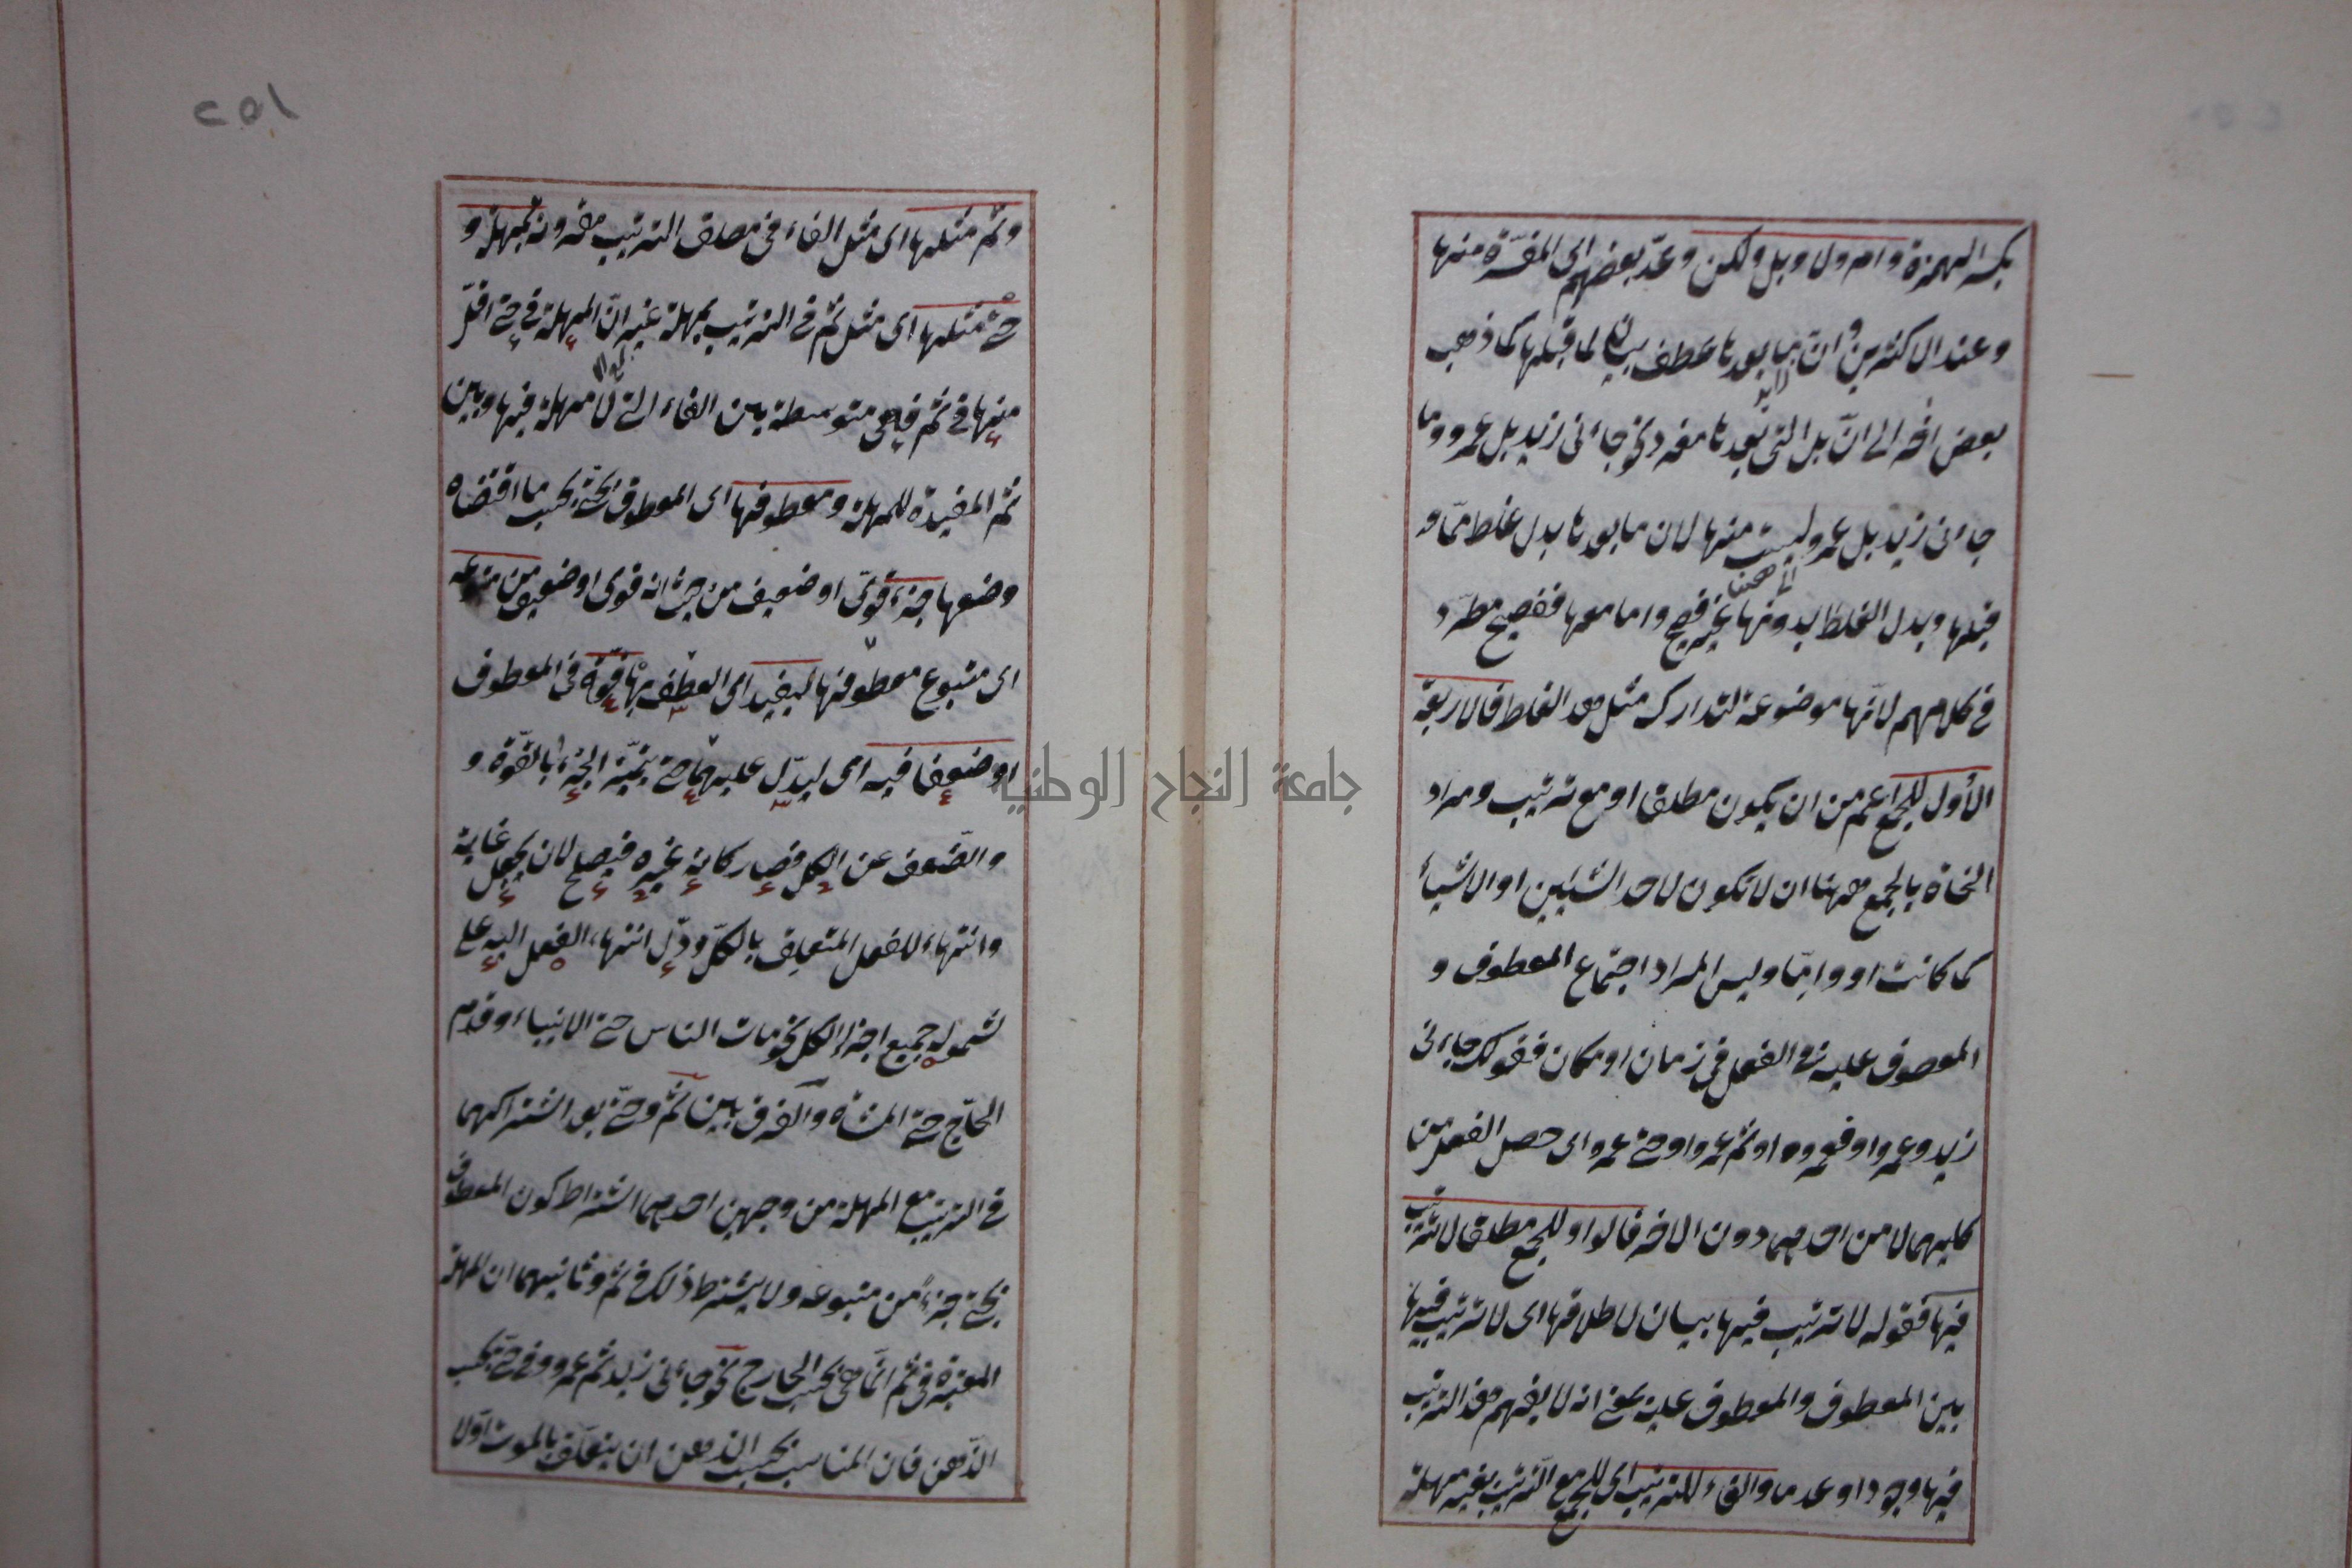 بكسر الهمزة وام ولا وبل ولكن وعدّ بعضهم اى المفسّرة منها
وعند الاكثرين ان ما بعدها عطف بيان لما قبلها كما ذهب
بعض اخر الى انّ بل التى بعدها مفرد نحو جاءنى زيد بل عمرو وما
جاءنى زيد بل عمرو ليست منها لان ما بعدها بدل غلط ممّا
قبلها وبدل الغلط بدونها غير فصيح واما معها ففصيح مطرد
فى كلامهم لانّها موضوعة لتدارك مثل هذا الغلط فالاربعة
الأول للجمع اعم من ان يكون مطلقا او مع ترتيب ومراد
النحاة بالجمع ههنا ان لا تكون لاحد الشيئين او الاشياء
كما كانت او واما وليس المراد اجتماع المعطوف و
المعطوف عليه فى الفعل فى زمان او مكان فقولك جاءنى
زيد وعمرو او فعمرو او ثم عمرو او حتى عمرو اى حصل الفعل من
كليهما لا من احدهما دون الاخر فالواو للجمع مطلقا لا ترتيب
فيها فقوله لا ترتيب فيها بيان لاطلاقها اى لا ترتيب فيها
بين المعطوف والمعطوف عليه بمعنى انه لا يفهم هذا الترتيب
فيها وجودا وعدما والفاء للترتيب اى للجمع مع الترتيب بغير مهلة
٢٥١
وثم مثلها اى مثل الفاء فى مطلق الترتيب مقرونة بمهلة و
حتى مثلها اى مثل ثم فى الترتيب بمهلة غير انّ المهلة فى حتى اقلّ
منها فى ثم فهى متوسطة بين الفاء التى لا مهلة فيها وبين
ثم المفيدة للمهلة ومعطوفها اى المعطوف بحتى بحسب ما اقتضاه
وضعها جزء قوىّ او ضعيف من حيث انه قوى او ضعيف من متبوعه
اى متبوع معطوفها ليفيد اى العطف بها قوّة فى المعطوف
او ضعفا فيه اى ليدلّ عليهما حتى يتميّز الجزء بالقوّة و
والضعف عن الكل فصار كانه غيره فيصلح لان يجعل غاية
وانتهاء للفعل المتعلق بالكلّ ودلّ انتهاء الفعل اليه على
شموله جميع اجزاء الكل نحو مات الناس حتى الانبياء وقدم
الحاجّ حتى المشاة والفرق بين ثم وحتى بعد اشتراكهما
فى الترتيب مع المهلة من وجهين احدهما اشتراط كون المعطوف
بحتى جزءً من متبوعه ولا يشترط ذلك فى ثم وثانيهما ان المهلة
المعتبرة فى ثم انّما هى بحسب الخارج نحو جاءنى زيد ثم عمرو وفى حتى بحسب
الذّهن فان المناسب بحسب الذهن ان يتعلّق الموت اوّلا
جامعة النجاح الوطنية